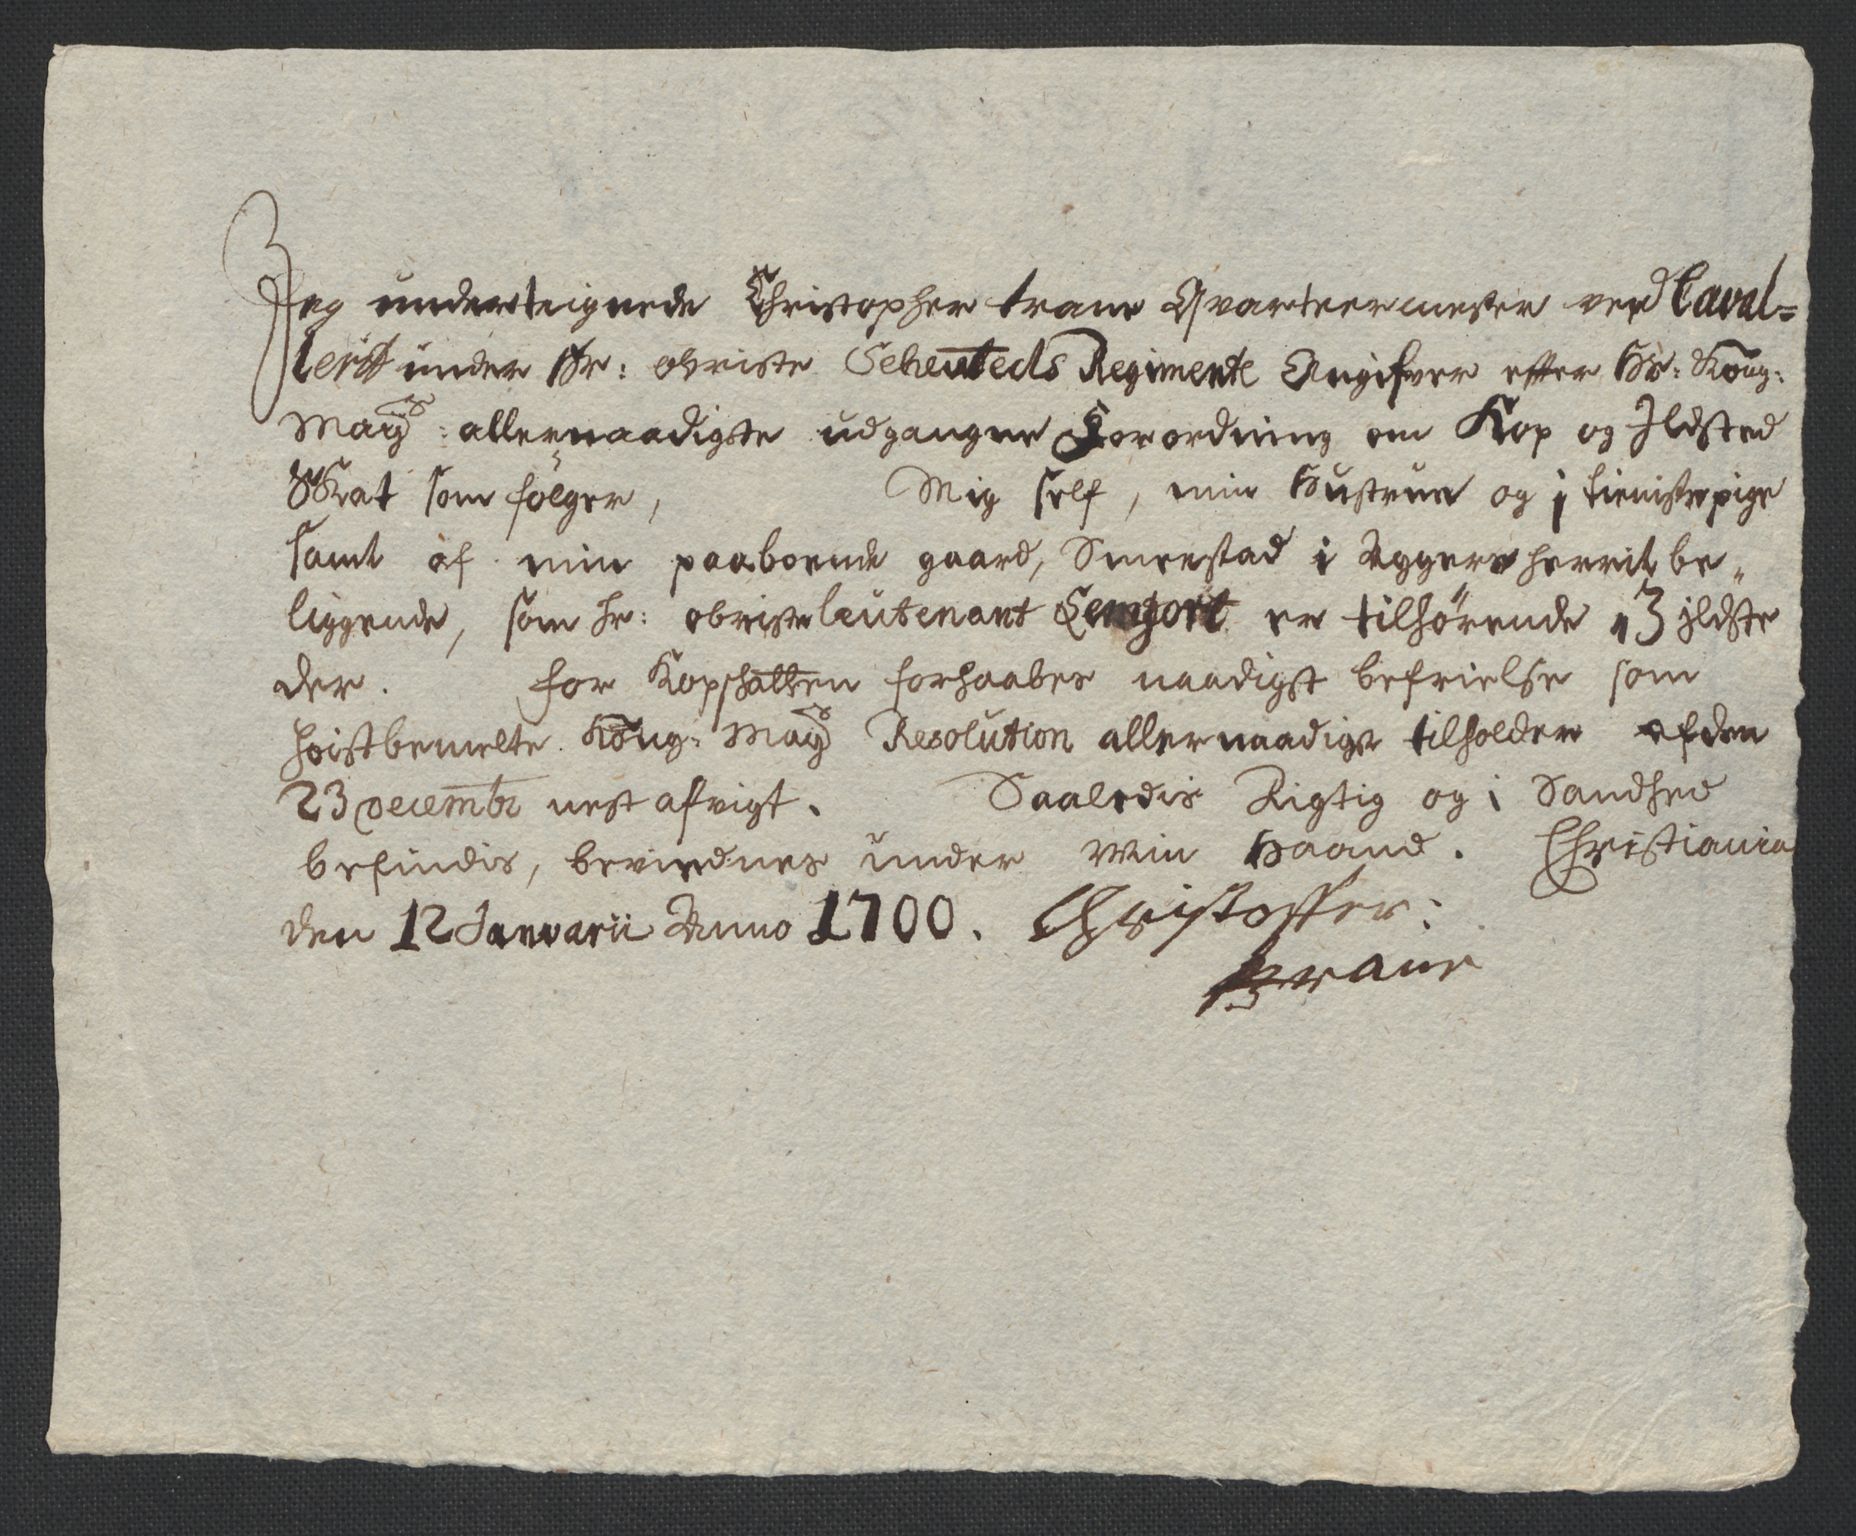 Jeg underteignede Christopher trane Qvarteermester ved Caval=
leriet under Hr: obriste Scheuteds Regimente Angifver efter Hr: Kong:
May: allernaadigste udgangne Forordning om Kop og Ildsted
Skat som fölger, Mig self, min Hustrue og j tieniste pige
samt af min paaboende gaard, Smeestad i Aggers herrit be„
liggende, som hr: obriste leutenant er tilhörende, 3 jldste
der. for Kopschatten forhaabes naadigst befrielse som
hoistbemelte Kong: May Resolution allernaadigst tilholder af den
23 decembr nest afvigt. Saaledis Rigtig og i Sandhed
befindis, bevidnes under Min Haand. Christiania
den 12 Januarii Anno 1700. Christoffer:
trane